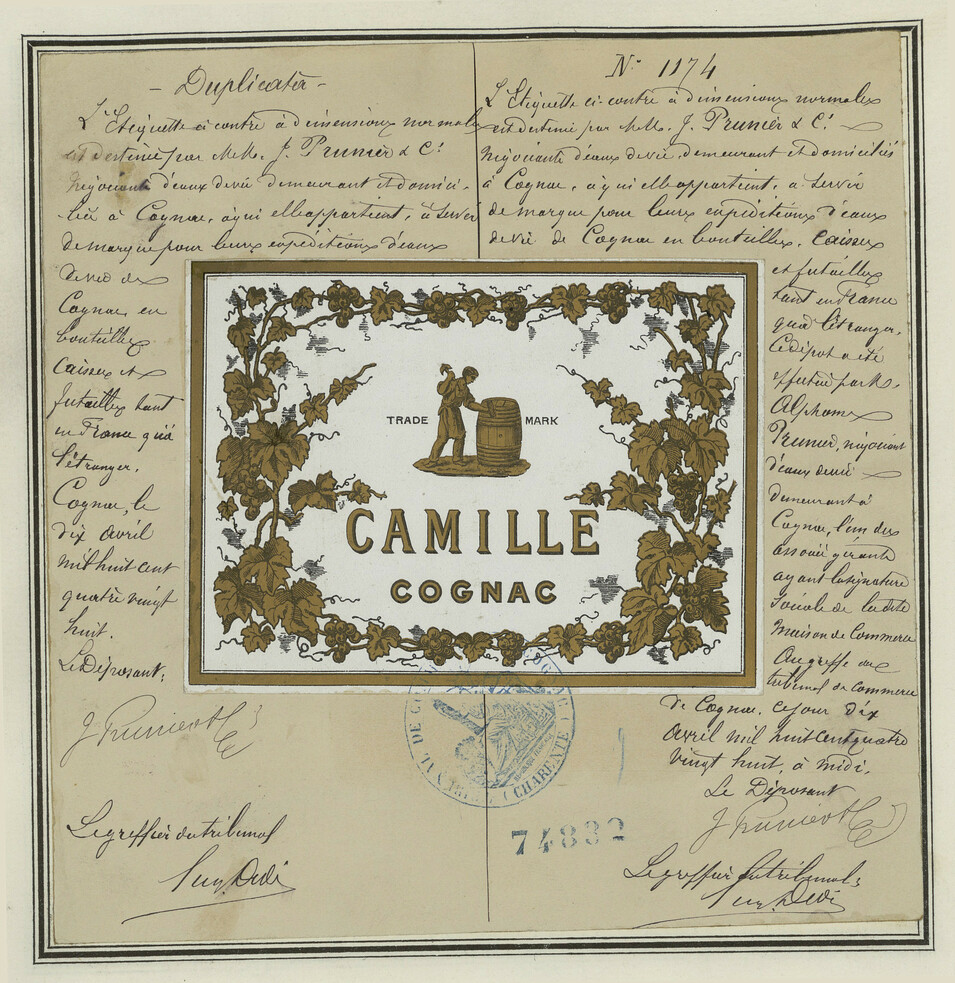 - Duplicata -
L'Etiquette ci contre à dimensions normales
est destinée par M.M. J. Prunier & Cie
négociants d'eaux de vie demeurant et domici-
liés à Cognac, à qui elle appartient, à servir
de marque pour leurs expéditions d'eaux
de vie de
Cognac en
bouteilles
caisses et
futailles tant
en France qu'à
l'étranger.
Cognac, le
dix avril
mil huit cent
quatre vingt
huit.
Le Déposant,
J. Prunier & Cie
Le greffier du tribunal
N° 1174
L'Etiquette ci contre à dimensions normales
est destinée par M.M. J. Prunier & Cie
négociants d'eaux de vie, demeurant et domiciliés
à Cognac, à qui elle appartient, à servir
de marque pour leurs expéditions d'eaux
de vie de Cognac en bouteilles, caisses
et futailles
tant en France
qu'à l'étranger.
Ce dépôt a été
effectué par M.
Alphonse
Prunier, négociant
d'eaux de vie
demeurant à
Cognac, l'un des
associés gérants
ayant la signature
sociale de la dite
maison de Commerce
Au greffe du
tribunal de commerce
de Cognac, ce jour dix
avril mil huit cent quatre
vingt huit, à midi.
Le Déposant
J. Prunier & Cie
Le greffier du tribunal
TRADE MARK
CAMILLE
COGNAC
(CHARENTE)
74832